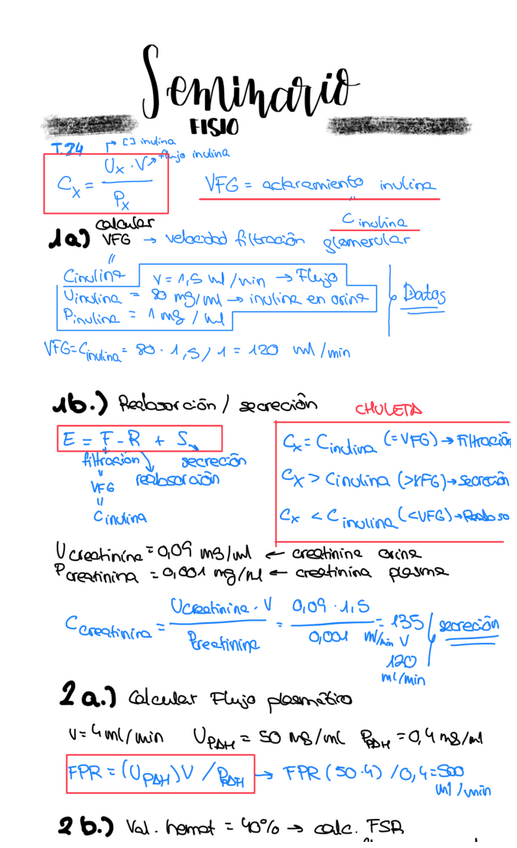 Seminario
FISIO
T.24
[] inulina
Cx = Ux · V / Px
flujo inulina
VFG = aclaramiento inulina
C inulina
1a) calcular VFG → velocidad filtración glomerular
Cinulina
V = 1,5 ml/min → Flujo
Uinulina = 80 mg/ml → inulina en orina
Pinulina = 1 mg/ml
Datos
VFG = Cinulina = 80 · 1,5/1 = 120 ml/min
1b.) Reabsorción / secreción
CHULETA
E = F - R + S
filtración
secreción
reabsorción
VFG
C inulina
Cx = Cinulina (=VFG) → Filtración
Cx > Cinulina (>VFG) → Secreción
Cx < Cinulina (<VFG) → Reabso
Ucreatinina = 0,09 mg/ml ← creatinina orina
Pcreatinina = 0,001 mg/ml ← creatinina plasma
Ccreatinina = Ucreatinina · V / Pcreatinina = 0,09 · 1,5 / 0,001 = 135 ml/min
V
120 ml/min
secreción
2a.) Calcular Flujo plasmático
V = 4 ml/min UPAH = 50 mg/ml PPAH = 0,4 mg/ml
FPR = (UPAH) V / PPAH → FPR (50·4) / 0,4 = 500 ml/min
2b.) Val. hemat = 40% → calc. FSR